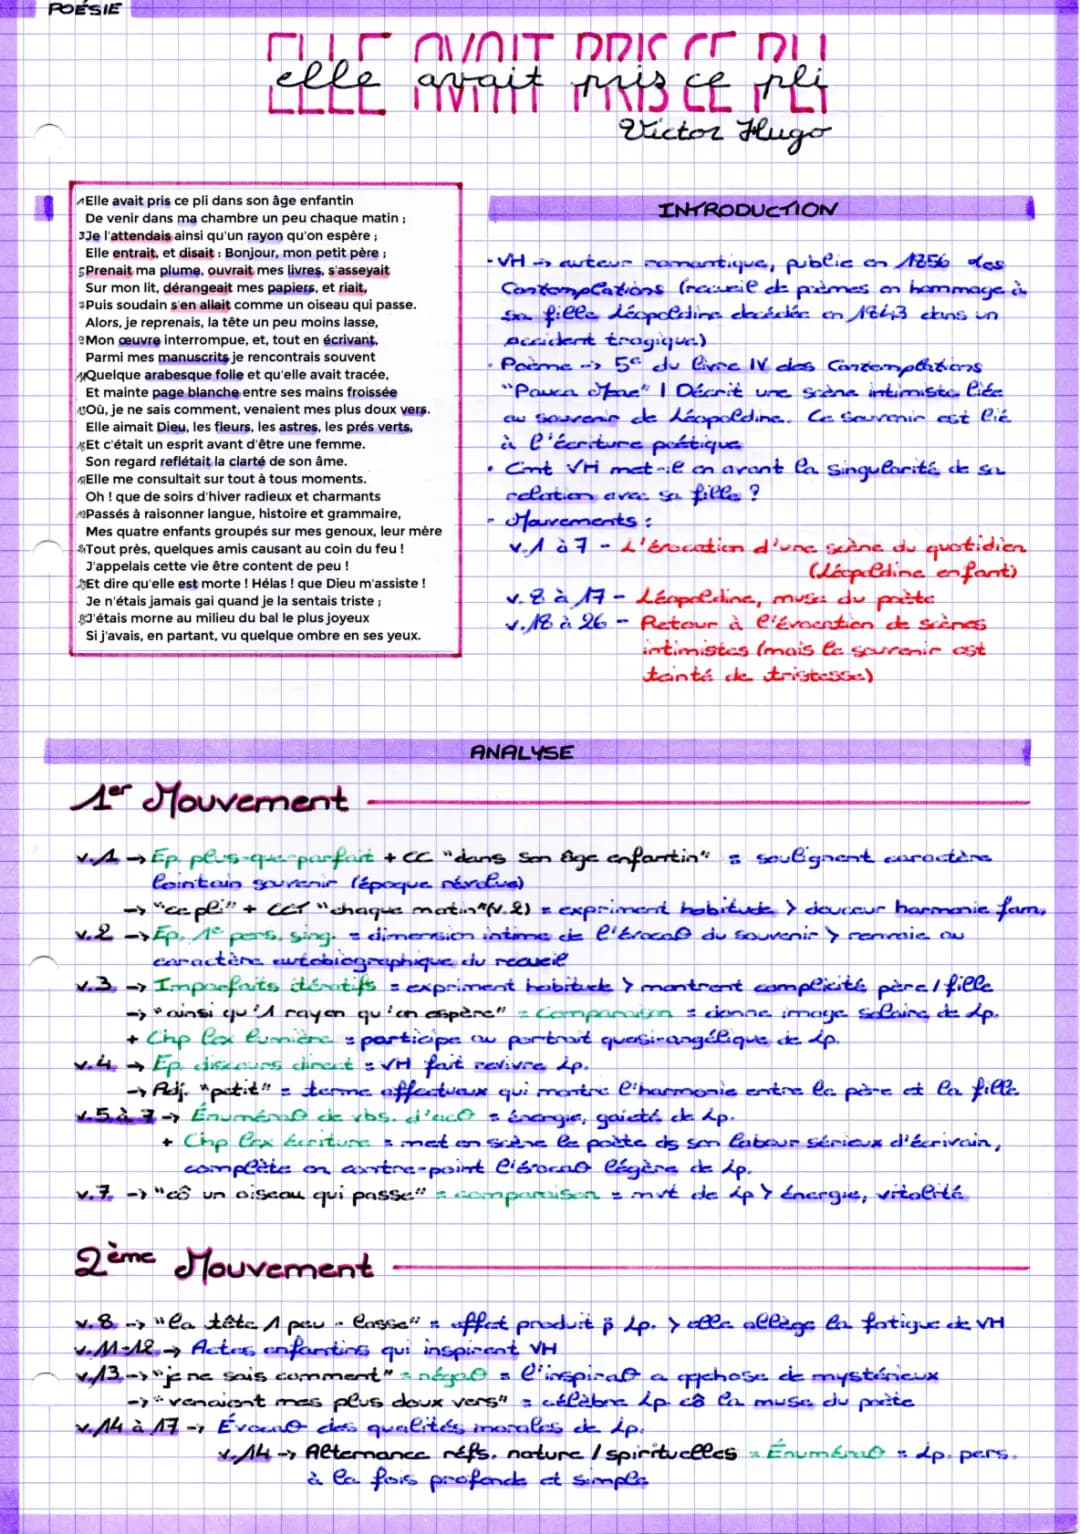 POÉSIE
ELLE AVAIT PRIS CE PLI
elle avait pris ce pli
Victor Hugo
1 Elle avait pris ce pli dans son âge enfantin
De venir dans ma chambre un peu chaque matin ;
3 Je l'attendais ainsi qu'un rayon qu'on espère ;
Elle entrait, et disait : Bonjour, mon petit père ;
5 Prenait ma plume, ouvrait mes livres, s'asseyait
Sur mon lit, dérangeait mes papiers, et riait,
7 Puis soudain s'en allait comme un oiseau qui passe.
Alors, je reprenais, la tête un peu moins lasse,
9 Mon œuvre interrompue, et, tout en écrivant,
Parmi mes manuscrits je rencontrais souvent
11 Quelque arabesque folle et qu'elle avait tracée,
Et mainte page blanche entre ses mains froissée
13 Où, je ne sais comment, venaient mes plus doux vers.
Elle aimait Dieu, les fleurs, les astres, les prés verts,
15 Et c'était un esprit avant d'être une femme.
Son regard reflétait la clarté de son âme.
17 Elle me consultait sur tout à tous moments.
Oh ! que de soirs d'hiver radieux et charmants
19 Passés à raisonner langue, histoire et grammaire,
Mes quatre enfants groupés sur mes genoux, leur mère
21 Tout près, quelques amis causant au coin du feu !
J'appelais cette vie être content de peu !
23 Et dire qu'elle est morte ! Hélas ! que Dieu m'assiste !
Je n'étais jamais gai quand je la sentais triste ;
25 J'étais morne au milieu du bal le plus joyeux
Si j'avais, en partant, vu quelque ombre en ses yeux.
INTRODUCTION
- VH -> auteur romantique, publie en 1856 des
Contemplations (recueil de poèmes en hommage à
sa fille Léopoldine decédée en 1843 dans un
accident tragique)
• Poème --> 5e du livre IV des Contemplations
"Pauca Meae" | Décrit une scène intimiste liée
au souvenir de Léopoldine. Ce souvenir est lié
à l'écriture poétique
• Cmt VH met-il en avant la singularité de sa
relation avec sa fille ?
- Mouvements :
v.1 à 7 - L'évocation d'une scène du quotidien
(Léopoldine enfant)
v. 8 à 17 - Léopoldine, muse du poète
v.18 à 26 - Retour à l'évocation de scènes
intimistes (mais le souvenir est
teinté de tristesse)
ANALYSE
1er Mouvement
v.1 -> Ep. plus-que-parfait + CC "dans son âge enfantin" = soulignent caractère
lointain souvenir (époque révolue)
-> "ce pli" + CCT "chaque matin" (v.2) = expriment habitude > douceur harmonie fam.
v.2 -> Ep. 1e pers. sing. = dimension intime de l'évocaO du souvenir > renvoie au
caractère autobiographique du recueil
v.3 -> Imparfaits itératifs = expriment habitude > montrent complicité père / fille
-> "ainsi qu'1 rayon qu'on espère" = Comparaison = donne image solaire de Lp.
+ Chp lex lumière = participe au portrait quasi-angélique de Lp.
v.4 -> Ep. discours direct = VH fait revivre Lp.
-> Adj. "petit" = terme affectueux qui montre l'harmonie entre le père et la fille
v.5 à 7 -> ÉnuméraO de vbs. d'acO = énergie, gaieté de Lp.
+ Chp lex écriture = met en scène le poète ds son labeur sérieux d'écrivain,
complète en contre-point l'évocaO légère de Lp.
v.7 -> "cô un oiseau qui passe" = comparaison = mvt de Lp > énergie, vitalité
2ème Mouvement
v.8 -> "la tête 1 peu - lasse" = effet produit p Lp. > elle allège la fatigue de VH
v.11-12 -> Actes enfantins qui inspirent VH
v.13 -> "je ne sais comment" = négaO = l'inspiraO a qqchose de mystérieux
-> "venaient mes plus doux vers" = célèbre Lp cô la muse du poète
v.14 à 17 -> ÉvocaO des qualités morales de Lp.
v.14 -> Alternance réfs. nature / spirituelles = ÉnuméraO = Lp. pers.
à la fois profonde et simple